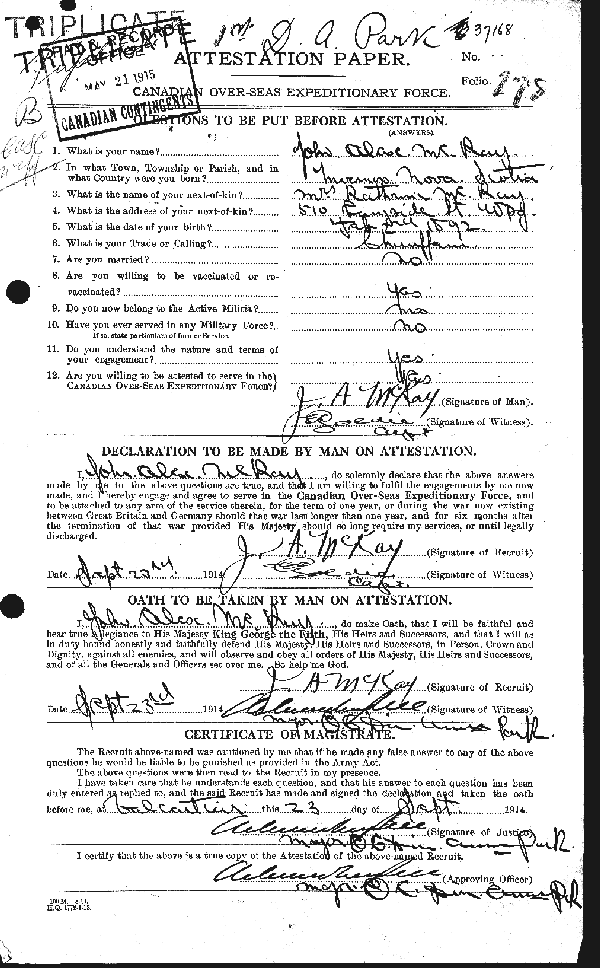 TRIPLICATE
TRIPLICATE
1st D. A. Park
37168
MAY 21 1915
CANADIAN CONTINGENTS
ATTESTATION PAPER.
No.
Folio. 178
CANADIAN OVER-SEAS EXPEDITIONARY FORCE.
B
QUESTIONS TO BE PUT BEFORE ATTESTATION.
(ANSWERS)
1. What is your name? John Alex McKay
2. In what Town, Township or Parish, and in
what Country were you born? Nova Scotia
3. What is the name of your next-of-kin? Mrs McKay
4. What is the address of your next-of-kin? 510 St Wpg.
5. What is the date of your birth? 1892
6. What is your Trade or Calling? Chauffeur
7. Are you married? no
8. Are you willing to be vaccinated or re-
vaccinated? Yes
9. Do you now belong to the Active Militia? no
10. Have you ever served in any Military Force? no
If so, state particulars of former Service.
11. Do you understand the nature and terms of
your engagement? Yes
12. Are you willing to be attested to serve in the
CANADIAN OVER-SEAS EXPEDITIONARY FORCE? Yes
J. A. McKay (Signature of Man).
(Signature of Witness).
DECLARATION TO BE MADE BY MAN ON ATTESTATION.
I, John Alex. McKay, do solemnly declare that the above answers
made by me to the above questions are true, and that I am willing to fulfil the engagements by me now
made, and I hereby engage and agree to serve in the Canadian Over-Seas Expeditionary Force, and
to be attached to any arm of the service therein, for the term of one year, or during the war now existing
between Great Britain and Germany should that war last longer than one year, and for six months after
the termination of that war provided His Majesty should so long require my services, or until legally
discharged.
J. A. McKay (Signature of Recruit)
Date Sept 23rd 1914 (Signature of Witness)
OATH TO BE TAKEN BY MAN ON ATTESTATION.
I, John Alex. McKay, do make Oath, that I will be faithful and
bear true Allegiance to His Majesty King George the Fifth, His Heirs and Successors, and that I will as
in duty bound honestly and faithfully defend His Majesty, His Heirs and Successors, in Person, Crown and
Dignity, against all enemies, and will observe and obey all orders of His Majesty, His Heirs and Successors,
and of all the Generals and Officers set over me. So help me God.
J. A McKay (Signature of Recruit)
Date Sept 23rd 1914 (Signature of Witness)
Major O C Park
CERTIFICATE OF MAGISTRATE.
The Recruit above-named was cautioned by me that if he made any false answer to any of the above
questions he would be liable to be punished as provided in the Army Act.
The above questions were then read to the Recruit in my presence.
I have taken care that he understands each question, and that his answer to each question has been
duly entered as replied to, and the said Recruit has made and signed the declaration and taken the oath
before me, at Valcartier this 23 day of Sept 1914.
(Signature of Justice)
Major O C Park
I certify that the above is a true copy of the Attestation of the above-named Recruit.
(Approving Officer)
Major O C Park